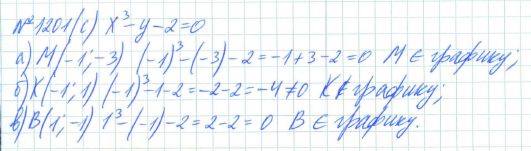 № 1201(с) x³-y-2=0
а) М(-1;-3) (-1)³-(-3)-2=-1+3-2=0 М ∈ графику;
б) К(-1;1) (-1)³-1-2=-2-2=-4≠0 К∉графику;
в) В(1;-1) 1³-(-1)-2=2-2=0 В ∈ графику.